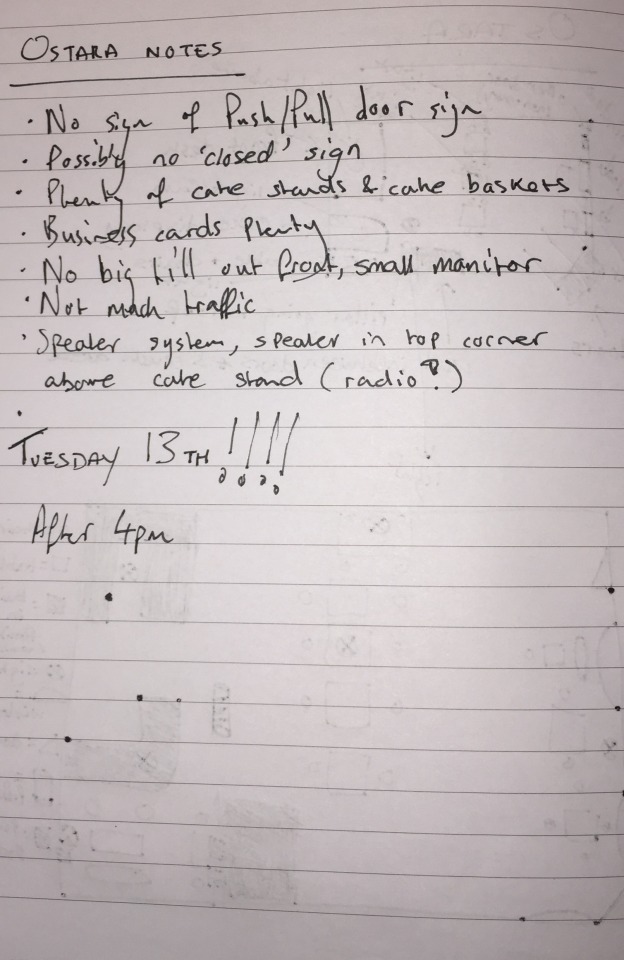 OSTARA NOTES
· No sign of Push/Pull door sign
· Possibly no 'closed' sign
· Plenty of cake stands & cake baskets
· Business cards plenty
· No big till out front, small monitor
· Not much traffic
· Speaker system, speaker in top corner
above cake stand (radio?)
·
TUESDAY 13TH !!!!
After 4pm